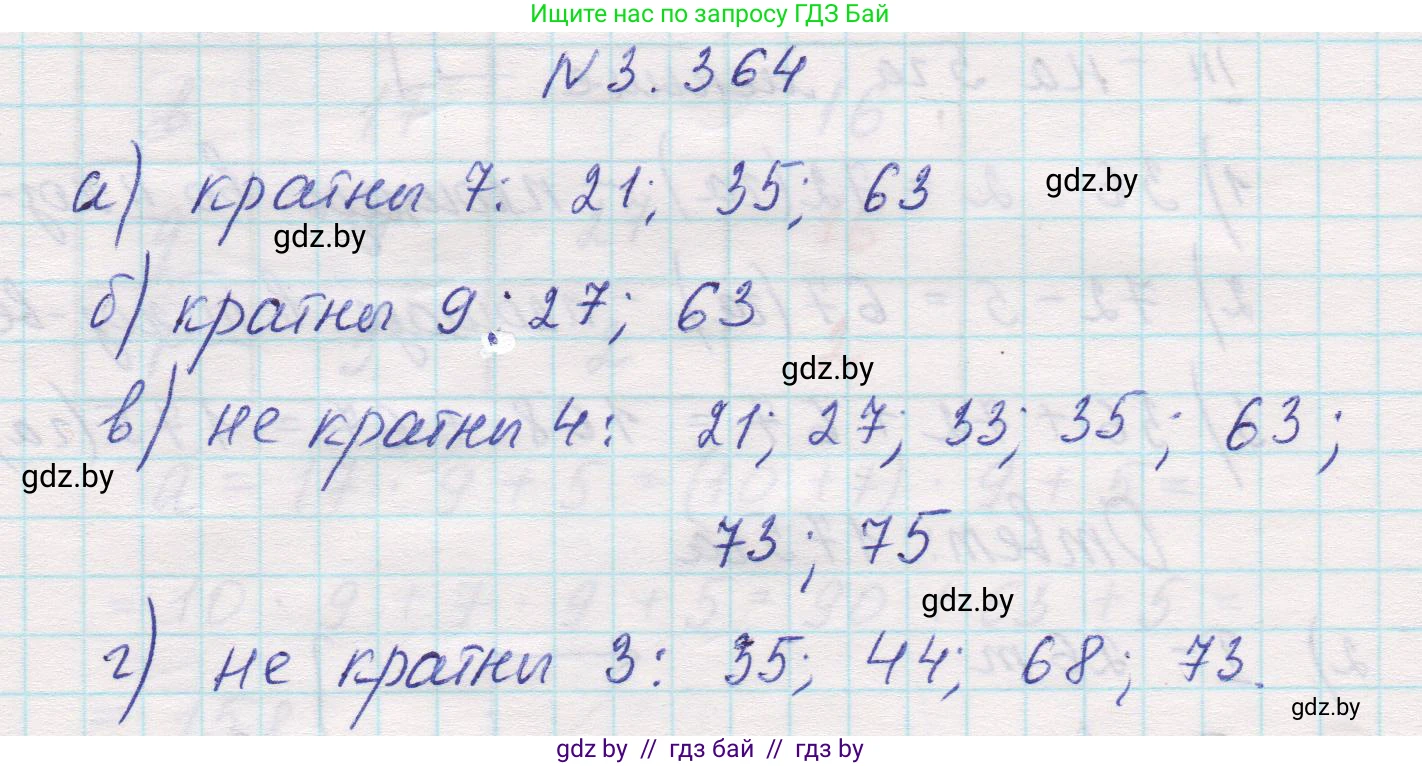 Ищите нас по запросу ГДЗ Бай
N 3.364
а) кратны 7: 21; 35; 63
gdz.by
gdz.by
б) кратны 9: 27; 63
gdz.by
в) не кратны 4: 21; 27; 33; 35; 63;
gdz.by
73; 75
gdz.by
г) не кратны 3: 35; 44; 68; 73.
gdz.by
gdz by // гдз бай // гдз by